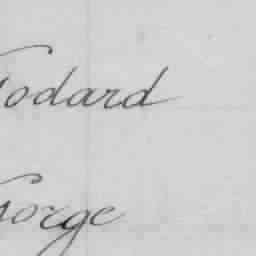 Godard
Gorge